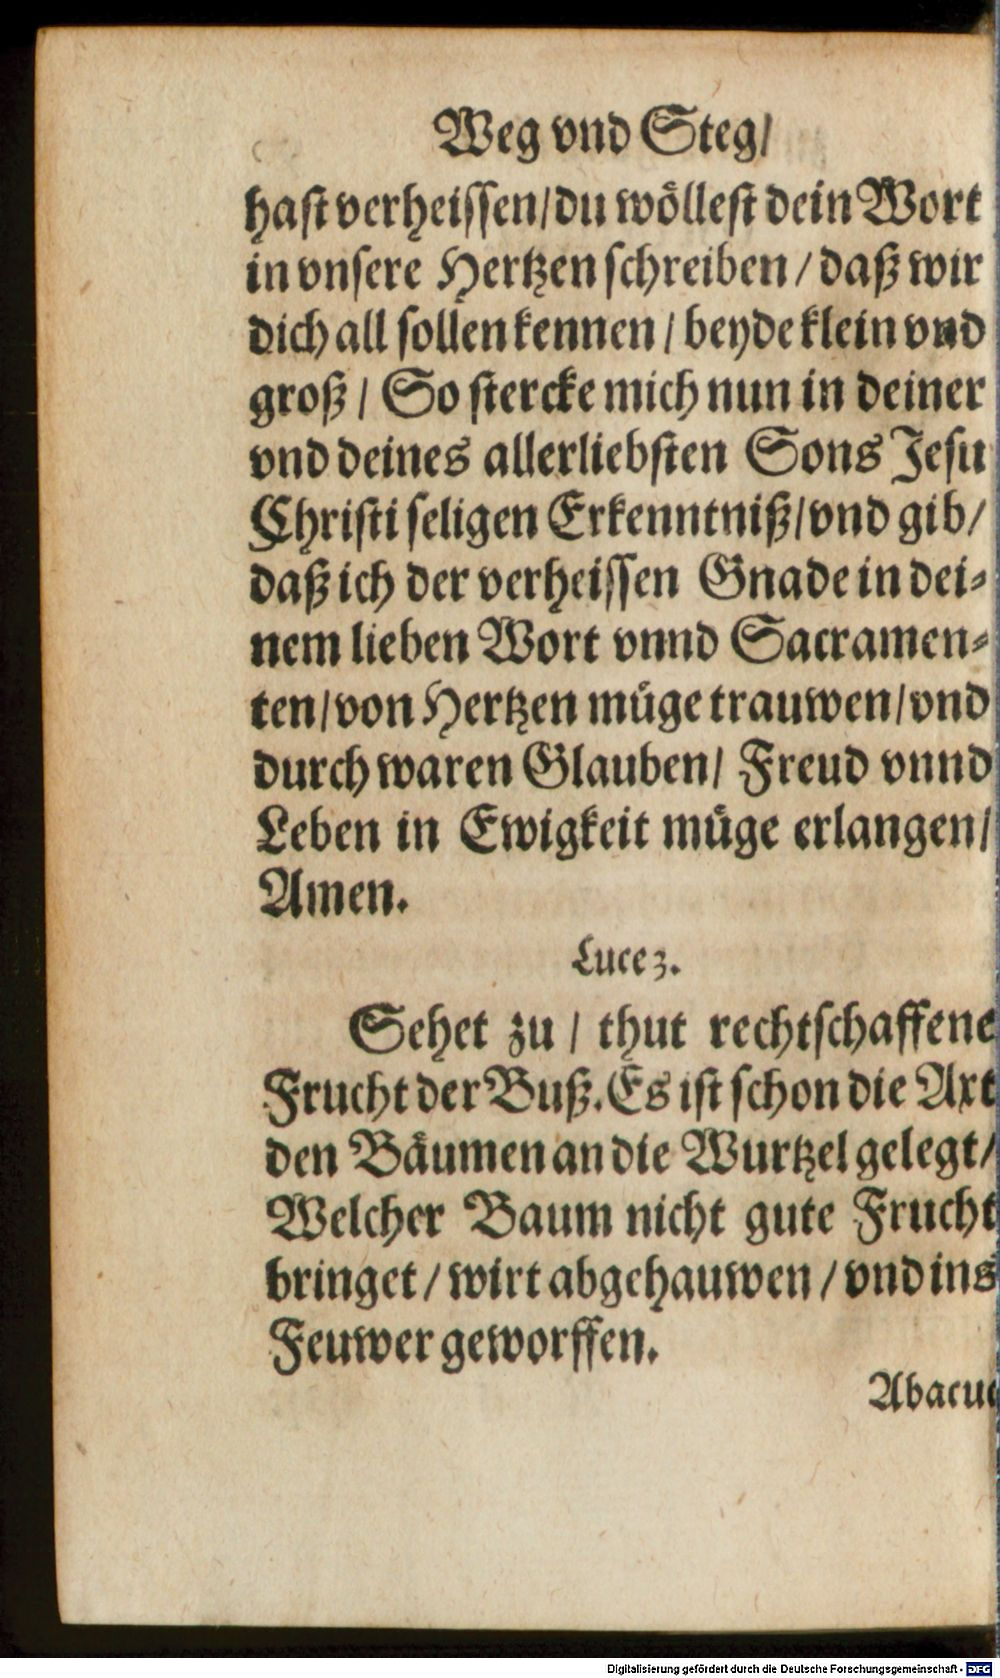 Weg vnd Steg/
hast verheissen/du wöllest dein Wort
in vnsere Hertzen schreiben / daß wir
dich all sollen kennen / beyde klein vnd
groß / So stercke mich nun in deiner
vnd deines allerliebsten Sons Jesu
Christi seligen Erkenntniß/vnd gib/
daß ich der verheissen Gnade in dei-
nem lieben Wort vnnd Sacramen-
ten/von Hertzen müge trauwen/vnd
durch waren Glauben/ Freud vnnd
Leben in Ewigkeit müge erlangen/
Amen.
Luce 3.
Sehet zu / thut rechtschaffene
Frucht der Buß. Es ist schon die Axt
den Bäumen an die Wurtzel gelegt/
Welcher Baum nicht gute Frucht
bringet / wirt abgehauwen / vnd ins
Feuwer geworffen.
Abacuc
Digitalisierung gefördert durch die Deutsche Forschungsgemeinschaft - DFG